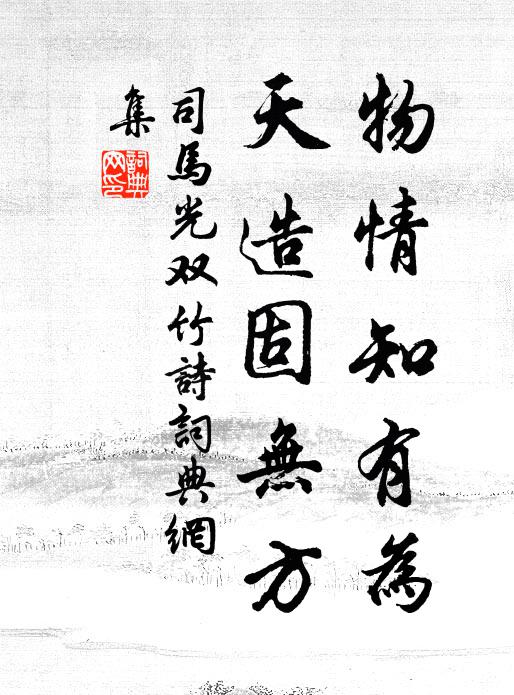 物情知有為
天造固無方
司馬光双竹詩詞典網
集
詞典网印